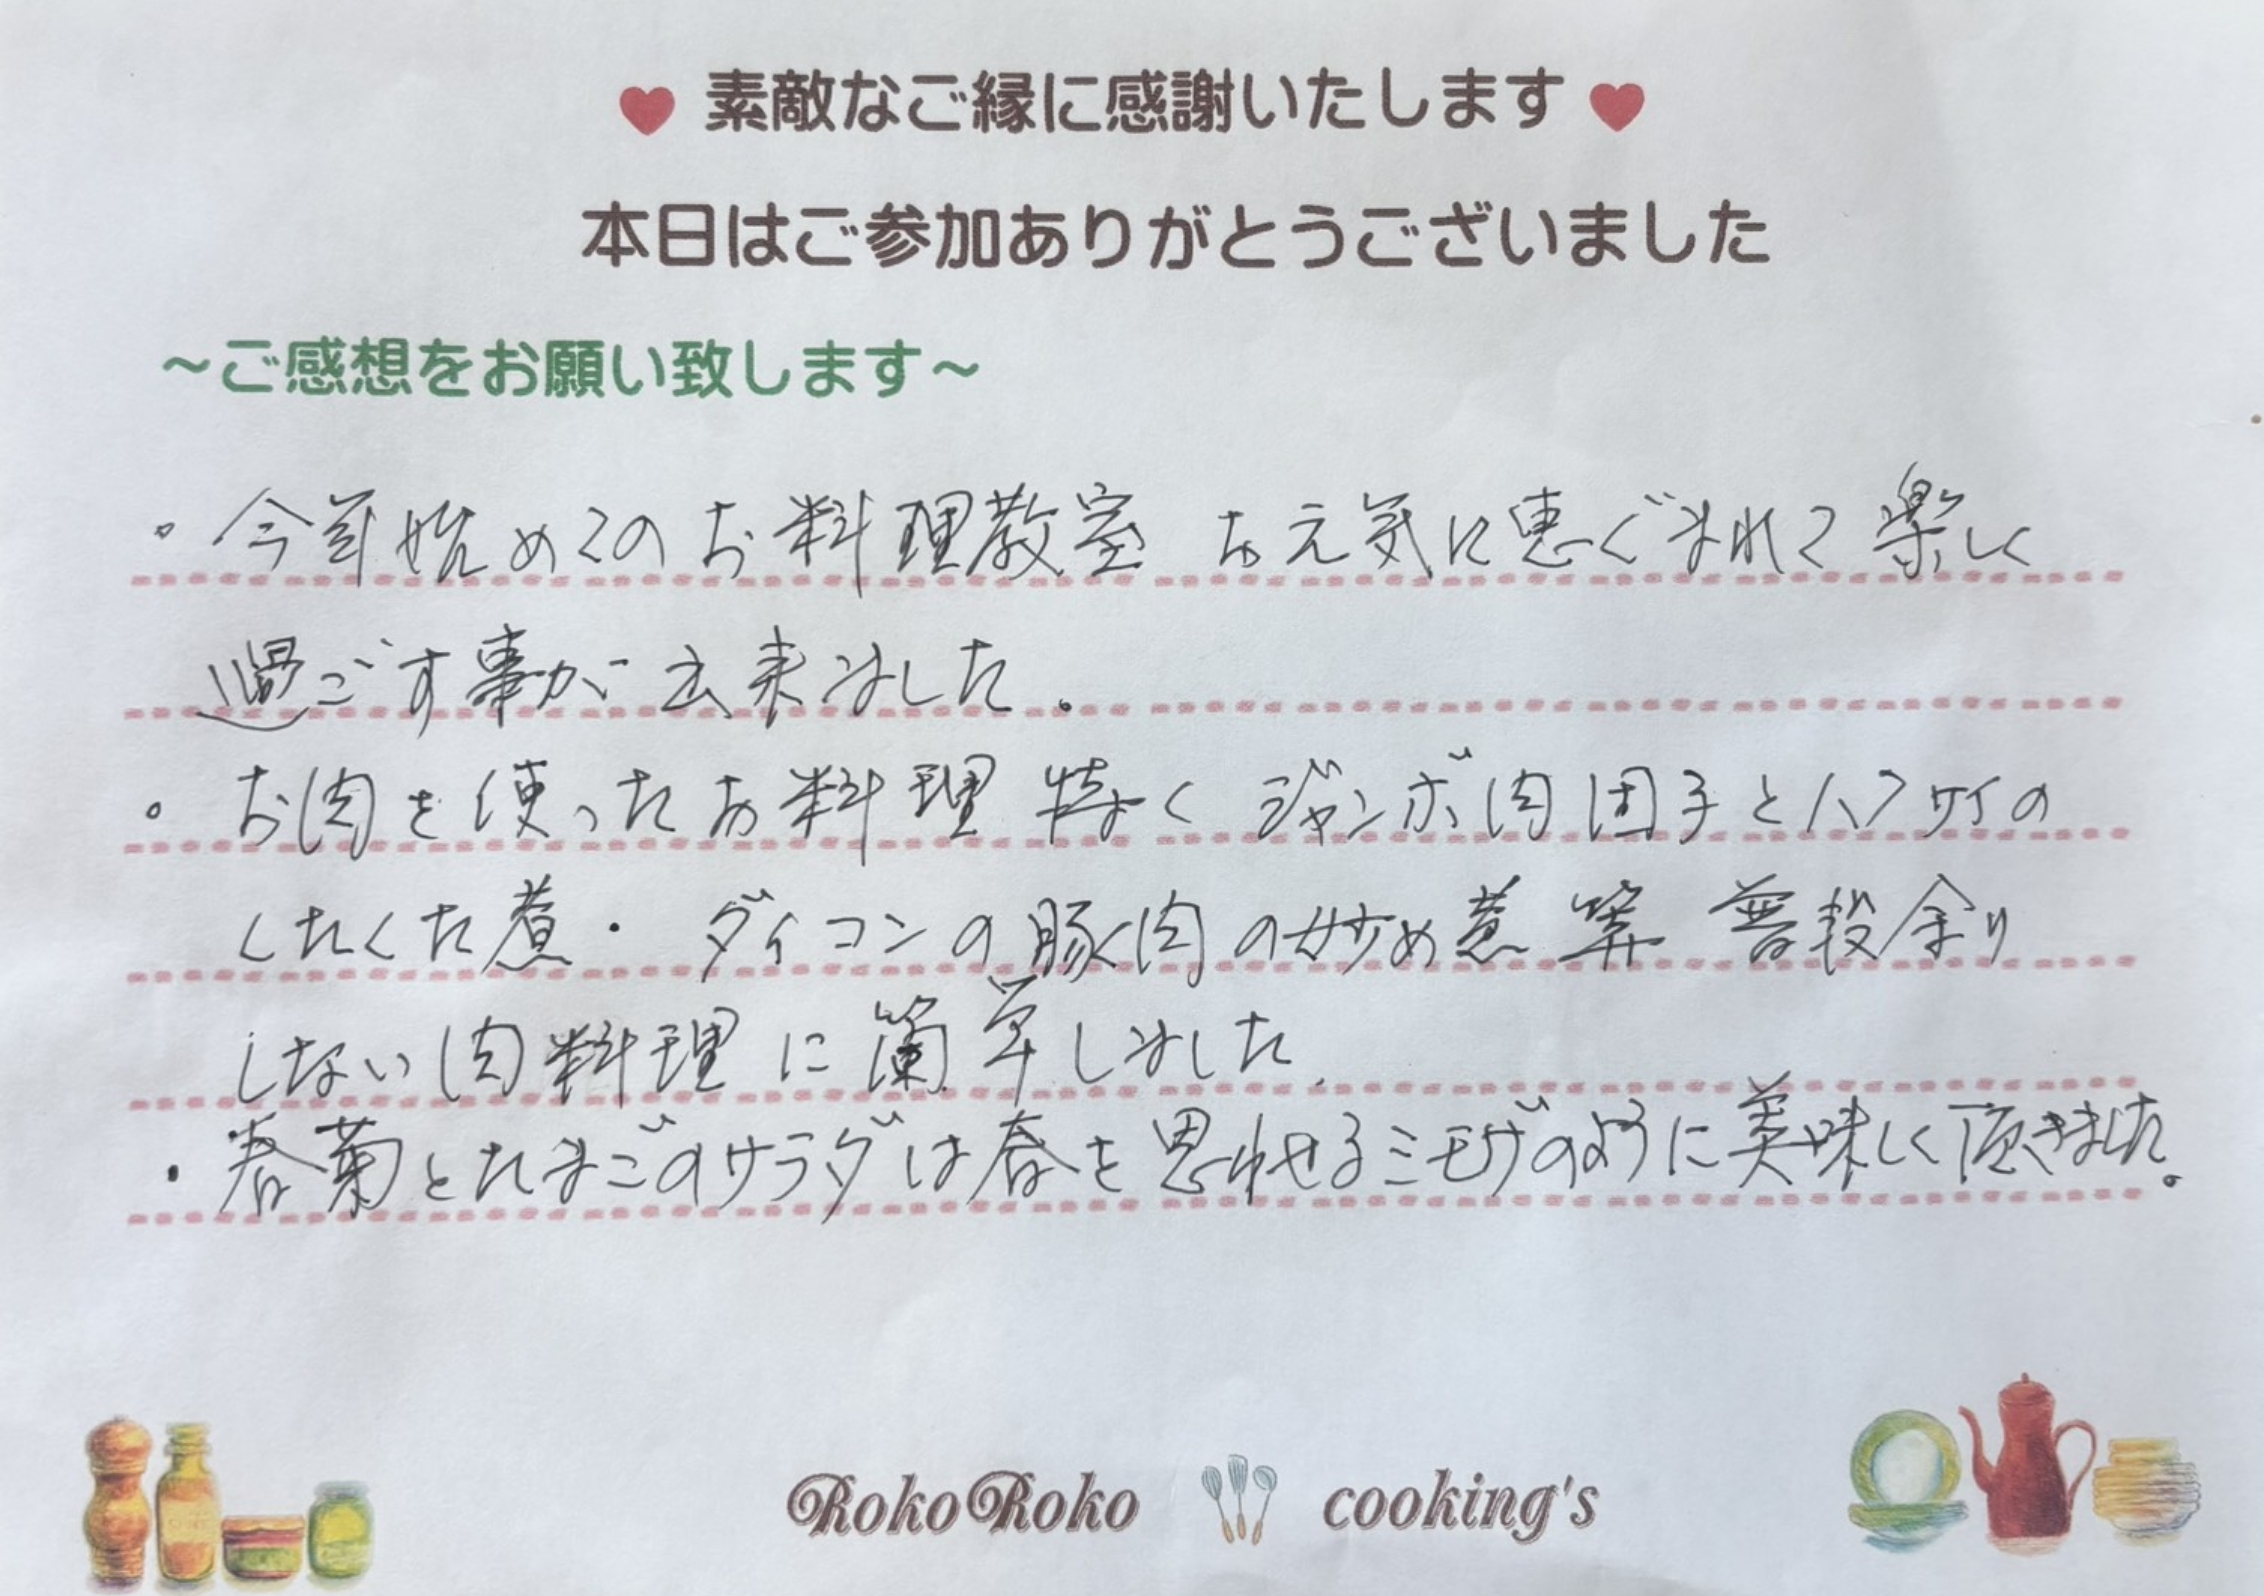 素敵なご縁に感謝いたします
本日はご参加ありがとうございました
~ご感想をお願い致します~
・今年始めてのお料理教室 お元気に恵ぐまれて楽しく
過ごす事が出来ました.
・お肉を使ったお料理 特に ジャンボ肉団子とハクサイの
くたくた煮・ダイコンの豚肉の炒め煮 等 普段余り
しない肉料理に しました.
・春菊とたまごのサラダは春を思わせるミモザのように美味しく頂きました。
RokoRoko cooking's